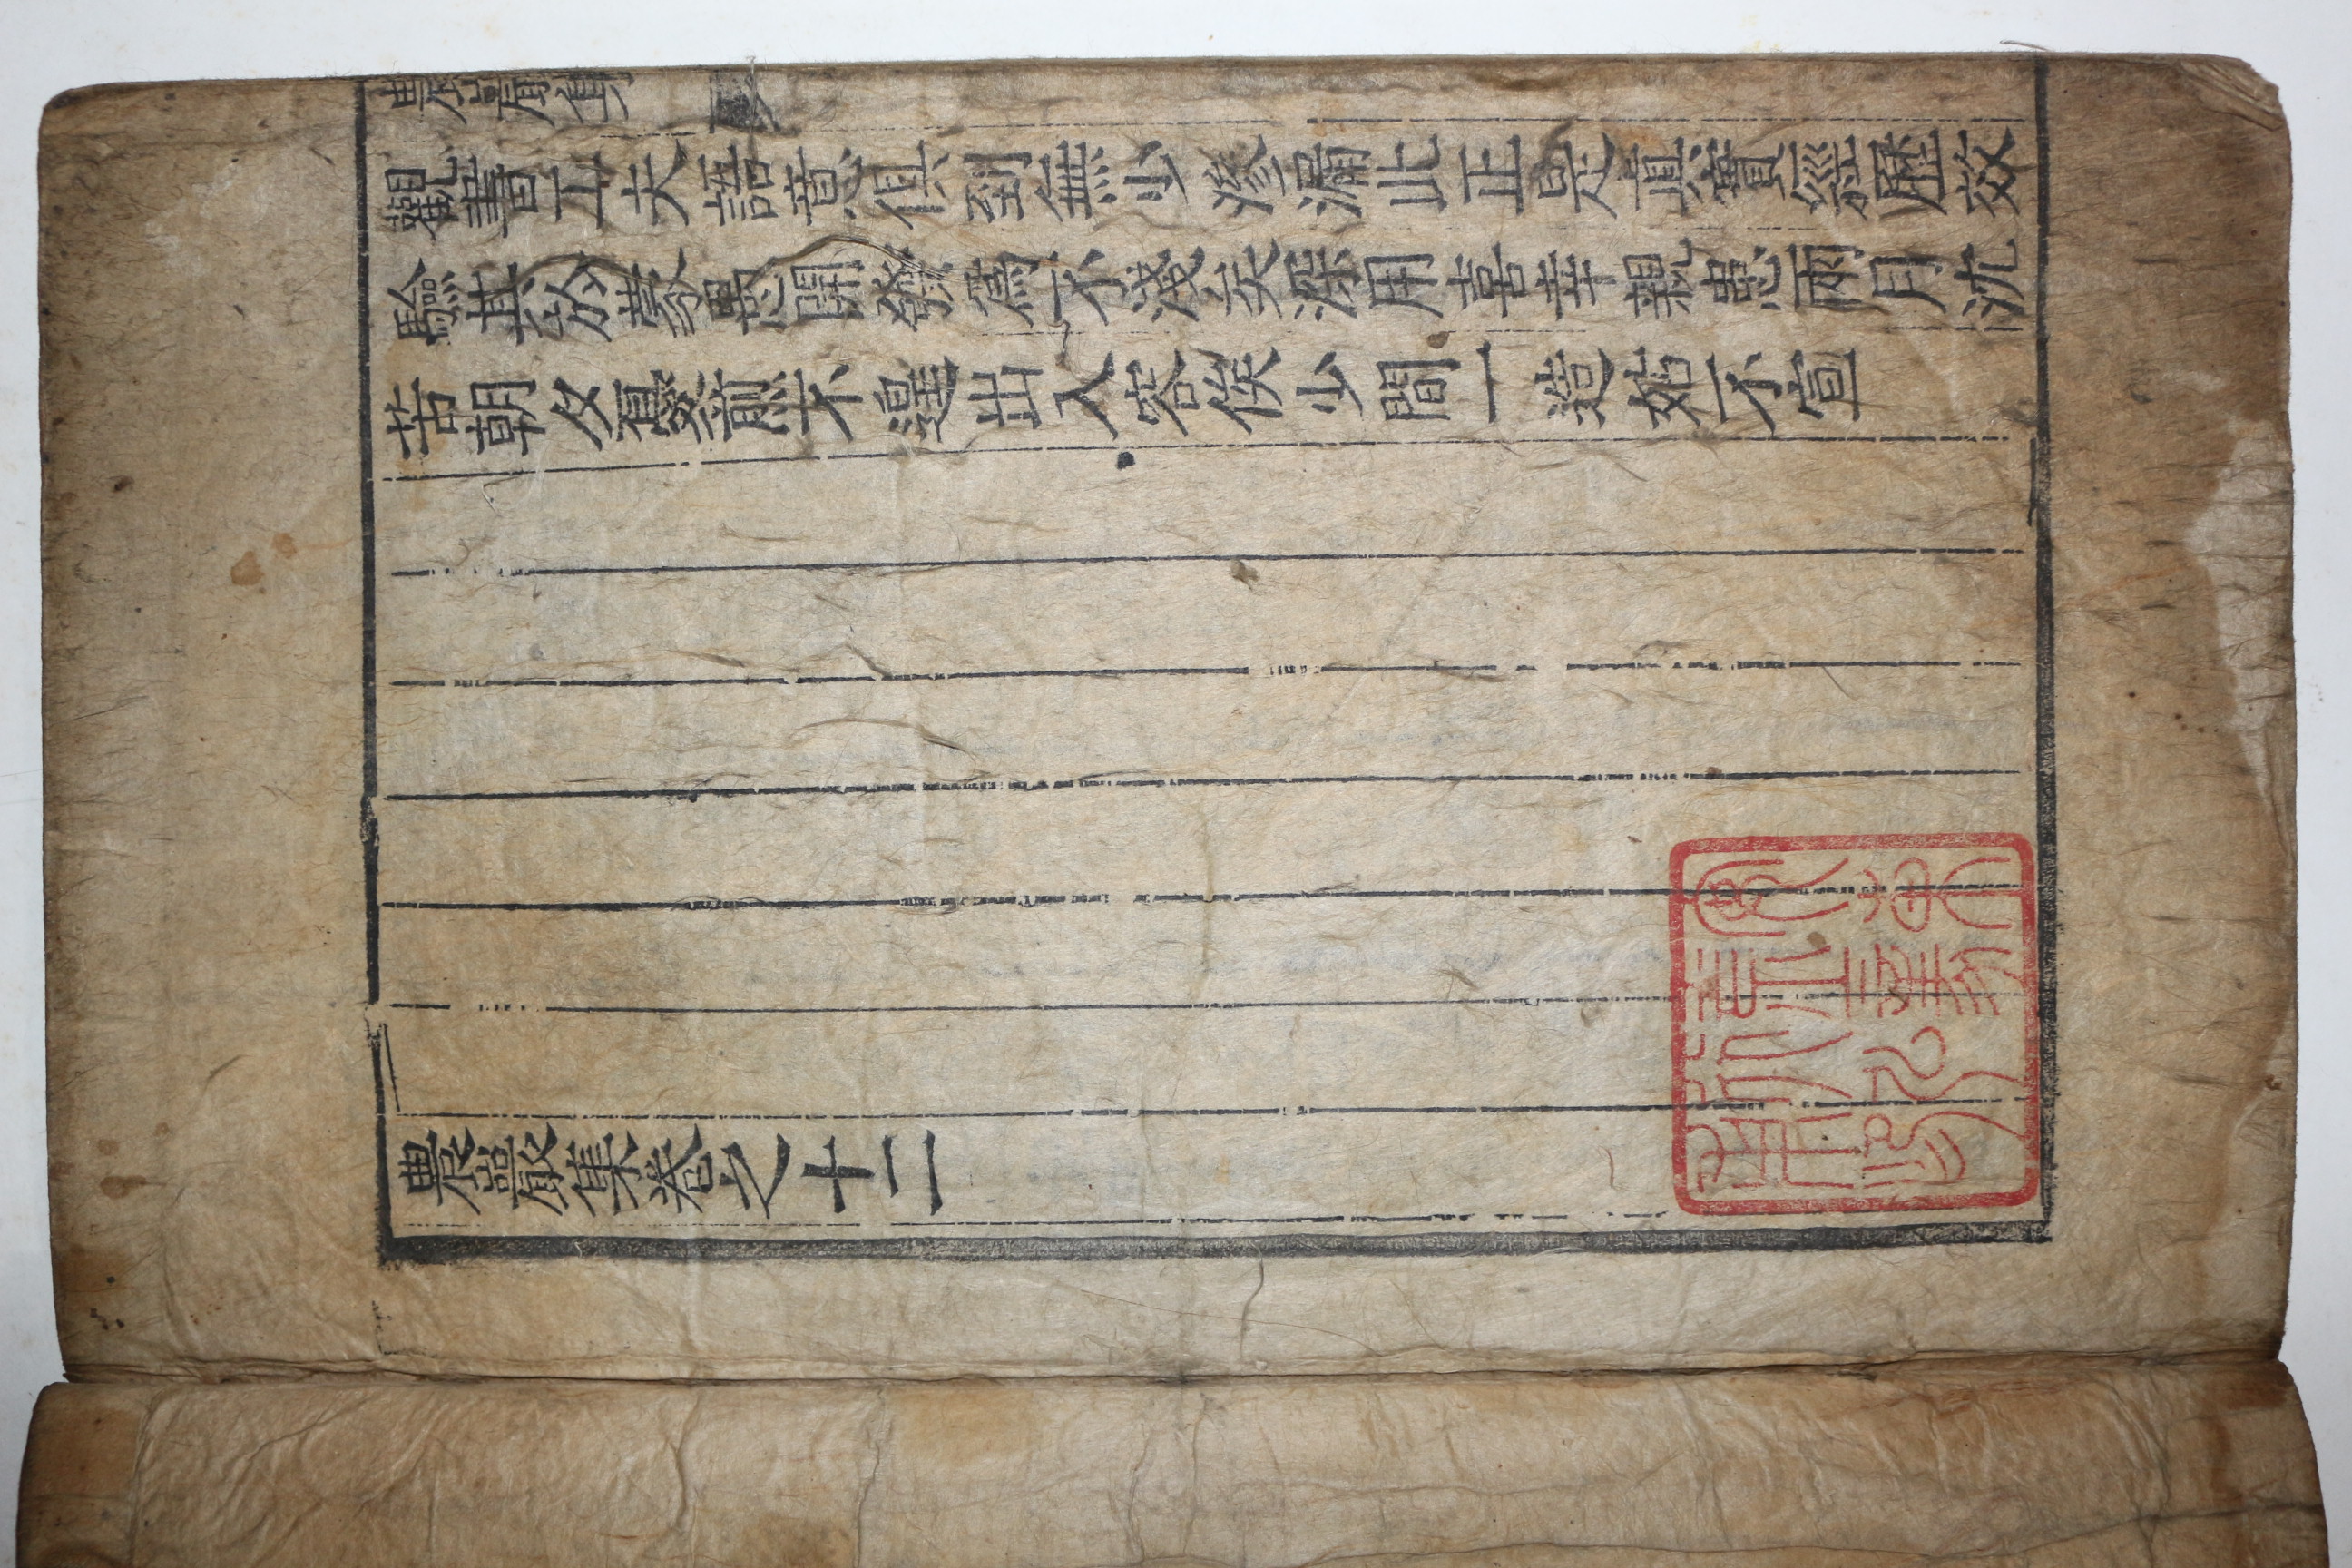 農巖集
觀書工夫語意俱到無少滲漏此正是眞實經歷效
驗其於蒙愚開發爲不淺矣深用喜幸親患兩月沈
苦朝夕憂煎不遑出入容俟少間一造姑不宣
農巖集卷之十二
安東